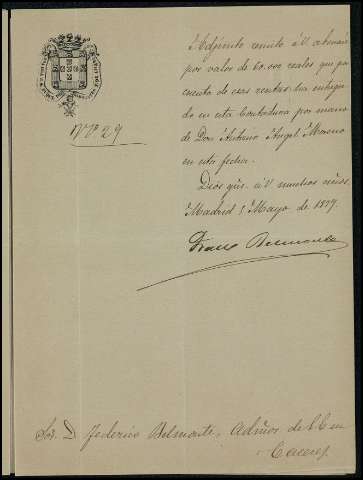 Nº 29
Adjunto remito á V
por valor de 60.000 reales que por
cuenta de esas rentas ha entrega-
do en esta Contaduria por mano
de Don Antonio Angel Moreno
en esta fecha.
Dios gûe. á V muchos años.
Madrid 5 Mayo de 1877.
Belmonte
Sor. D. Federico Belmonte, Admor. de S.E. en
Caceres.